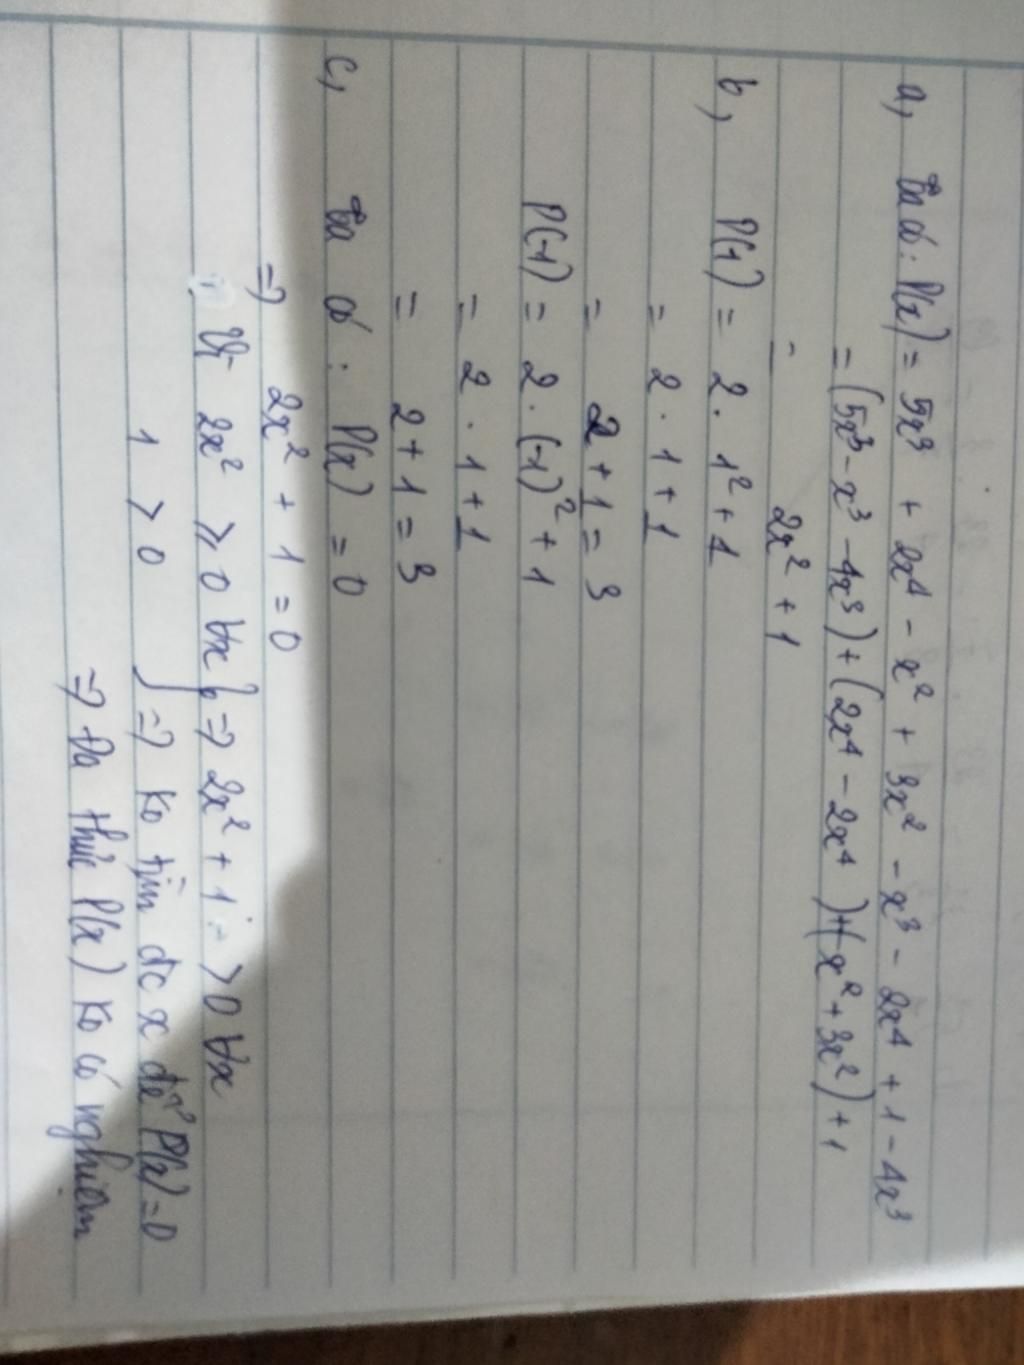 a, Ta có: P(x) = 5x³ + 2x⁴ - x² + 3x² - x³ - 2x⁴ + 1 - 4x³
= (5x³ - x³ - 4x³) + (2x⁴ - 2x⁴) + (-x² + 3x²) + 1
= 2x² + 1
b, P(1) = 2 . 1² + 1
= 2 . 1 + 1
= 2 + 1 = 3
P(-1) = 2 . (-1)² + 1
= 2 . 1 + 1
= 2 + 1 = 3
c, Ta có : P(x) = 0
=> 2x² + 1 = 0
Vì 2x² ≥ 0 ∀x } => 2x² + 1 > 0 ∀x
1 > 0 } => ko tìm đc x để P(x) = 0
=> Đa thức P(x) ko có nghiệm